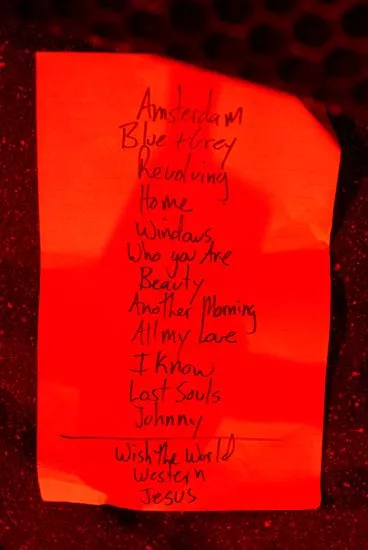 Amsterdam
Blue + Grey
Revolving
Home
Windows
Who you Are
Beauty
Another Morning
All my Love
I Know
Lost Souls
Johnny
Wish The World
Western
Jesus